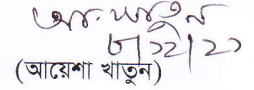 আ. খাতুন
৮/১২/২১
(আয়েশা খাতুন)